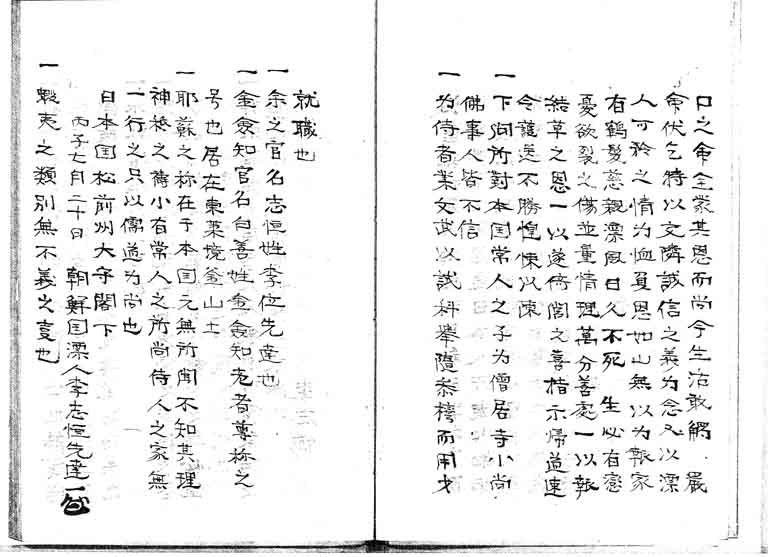 口之命全蒙其恩而尚今生活敢觸 嚴
命伏乞特以交隣誠信之義為念又以漂
人可矜之情為恤夏恩如山無以為報家
有鶴髮慈親漂風日久不死 生必有
憂欲裂之傷並量情理萬分善處一以報
結草之恩一以遂倚閭之喜指示帰道速
令護送不勝惶悚以陳
一 下問所對本国常人之子為僧居寺小尚
佛事人皆不信
一 為侍者業文武以試科舉隨榜而用才
就職也
一余之官名志恒姓李位先達也
一金僉知官名白善姓金僉知老者尊称之
号也居在東萊境釜山土
一耶蘇之称在于本国元無所聞不知其理
神之禱小有常人之所尚侍人之家無
一行之只以儒道為尚也
日本国松前州大守閣下
丙子七月二十日 朝鮮国漂人李志恒先達
一 蝦夷之類別無不義之也